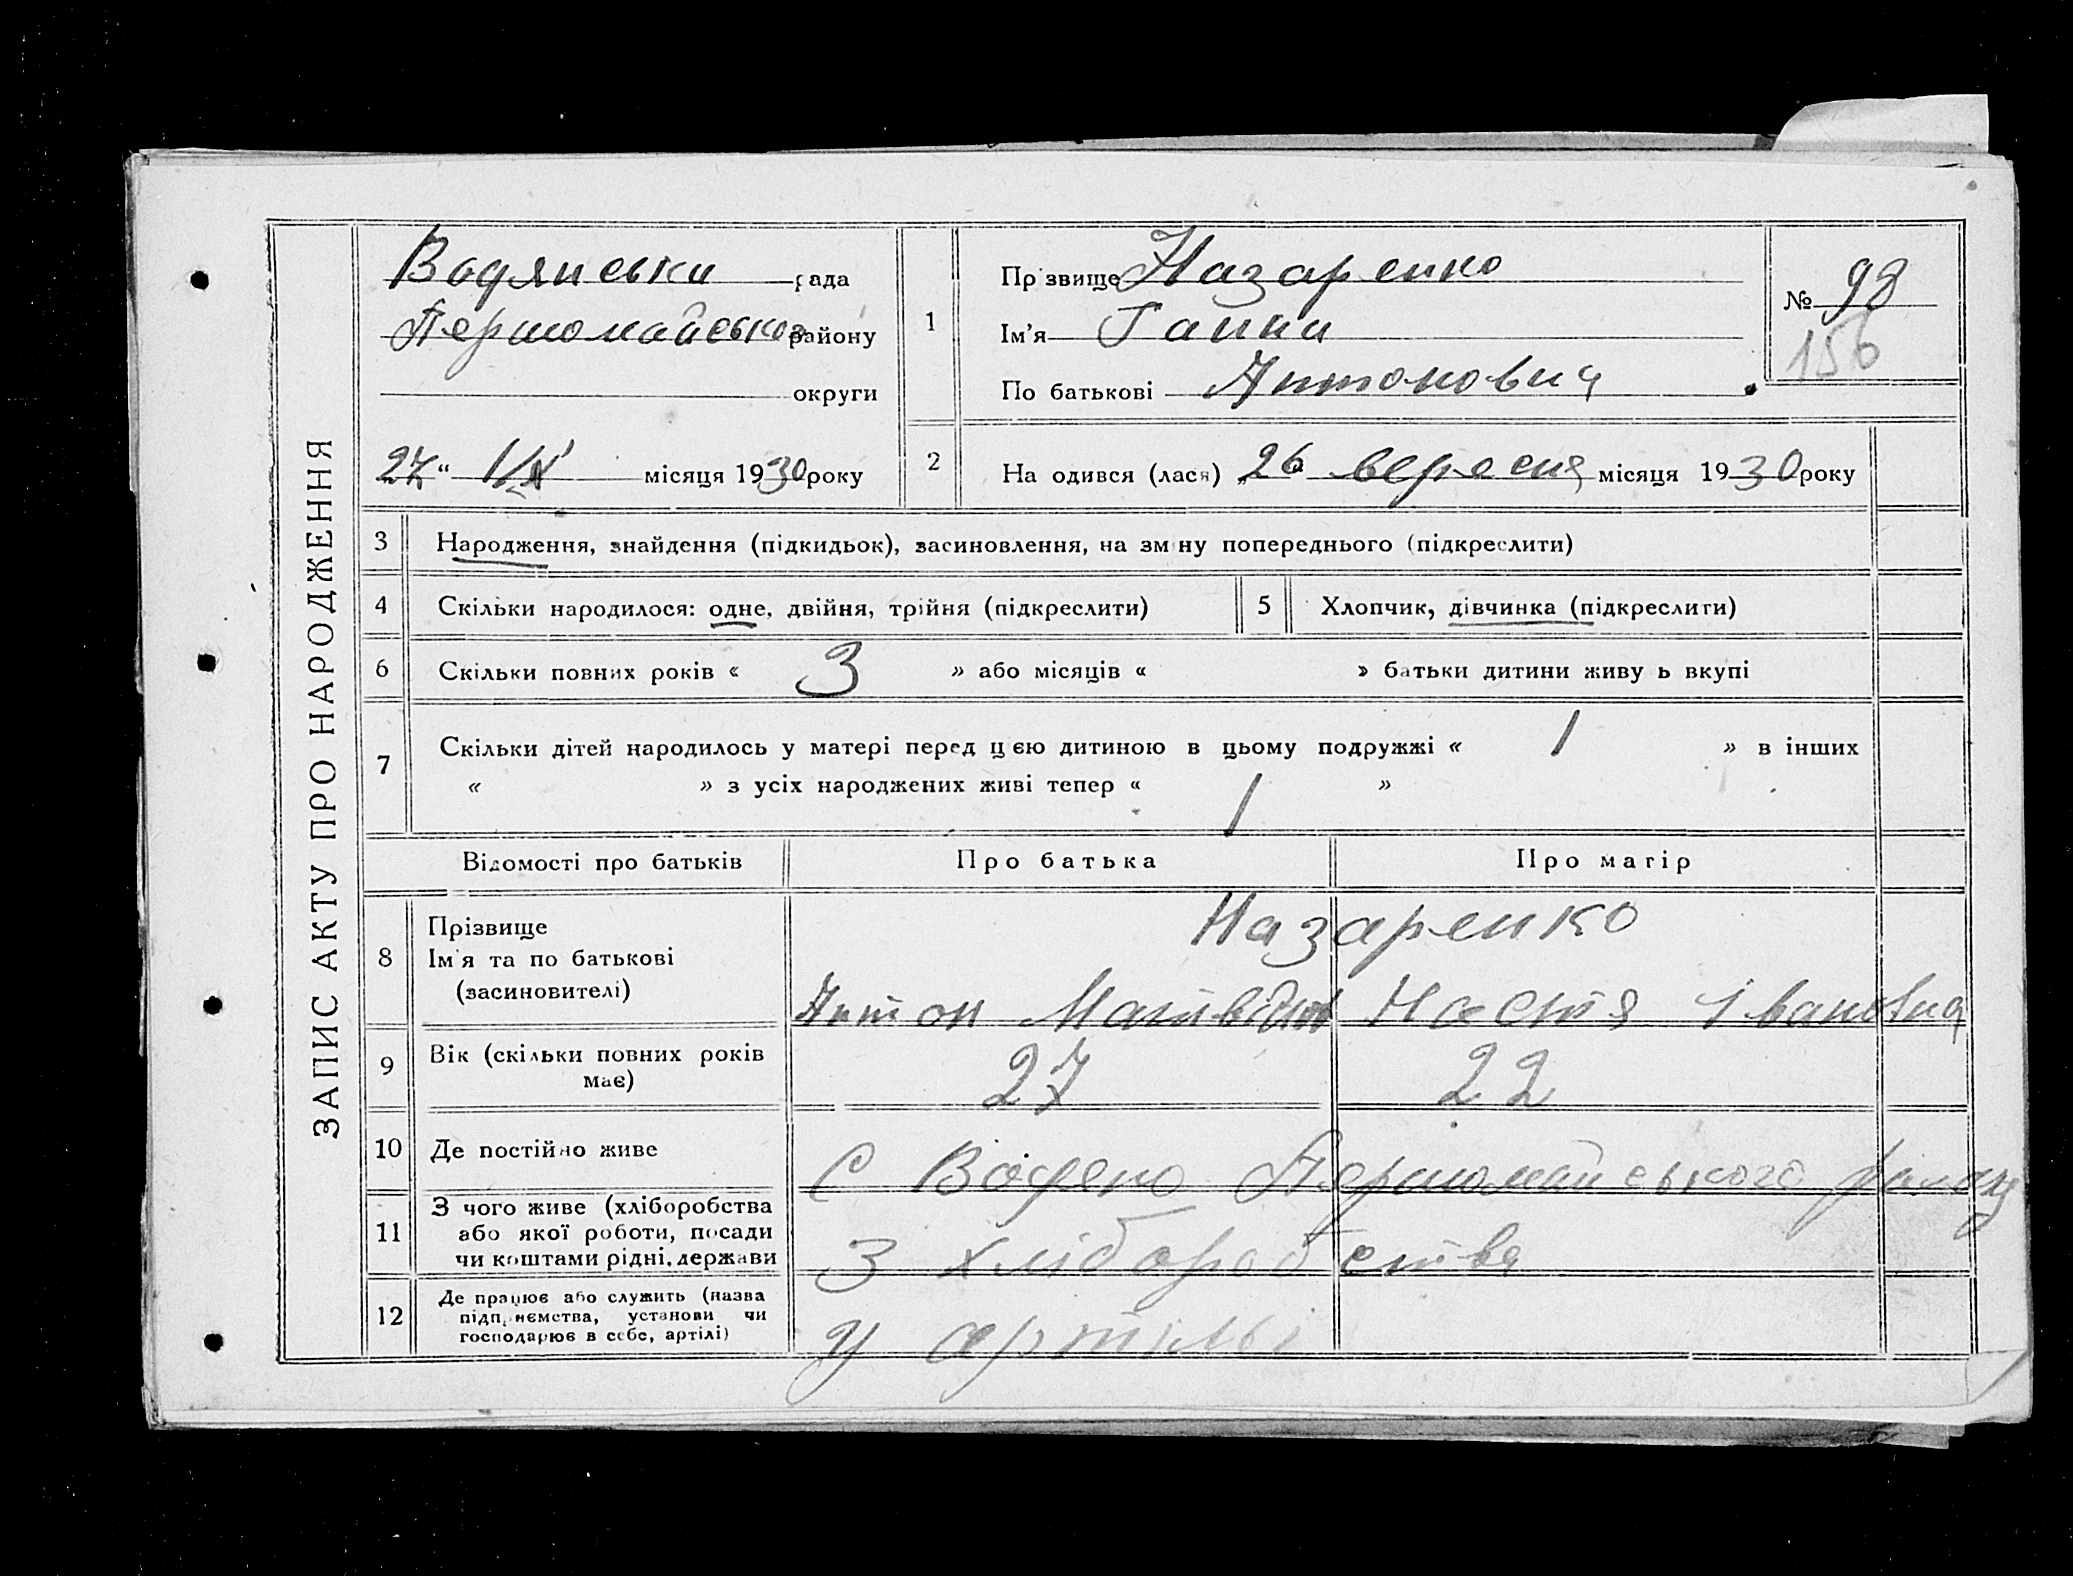 ЗАПИС АКТУ ПРО НАРОДЖЕННЯ
Водянська рада
Першомайсько района району
округи
27 " IX місяця 1930 року
1
Прізвище Назаренко
Ім'я Ганна
По батькові Антоновна
№ 98
156
2
На одився (лася) „26" вересня місяця 1930 року
3 Народження, знайдення (підкидьок), засиновлення, на зм ну попереднього (підкреслити)
4 Скільки народилося: одне, двійня, трійня (підкреслити)
5 Хлопчик, дівчинка (підкреслити)
6 Скільки повних років « 3 » або місяців « » батьки дитини живу ь вкупі
7 Скільки дітей народилось у матері перед цією дитиною в цьому подружжі « 1 » в інших
« » з усіх народжених живі тепер « 1 »
Відомості про батьків Про батька Про матір
8 Прізвище
Ім'я та по батькові
(засиновителі)
Назаренко
Антон Настя Івановна
9 Вік (скільки повних років
має)
27 22
10 Де постійно живе
С Водяно Першомайського району
11 З чого живе (хліборобства
або якої роботи, посади
чи коштами рідні, держави
З хліборобства
12 Де працює або служить (назва
підприємства, установи чи
господарює в себе, артілі)
У артилі